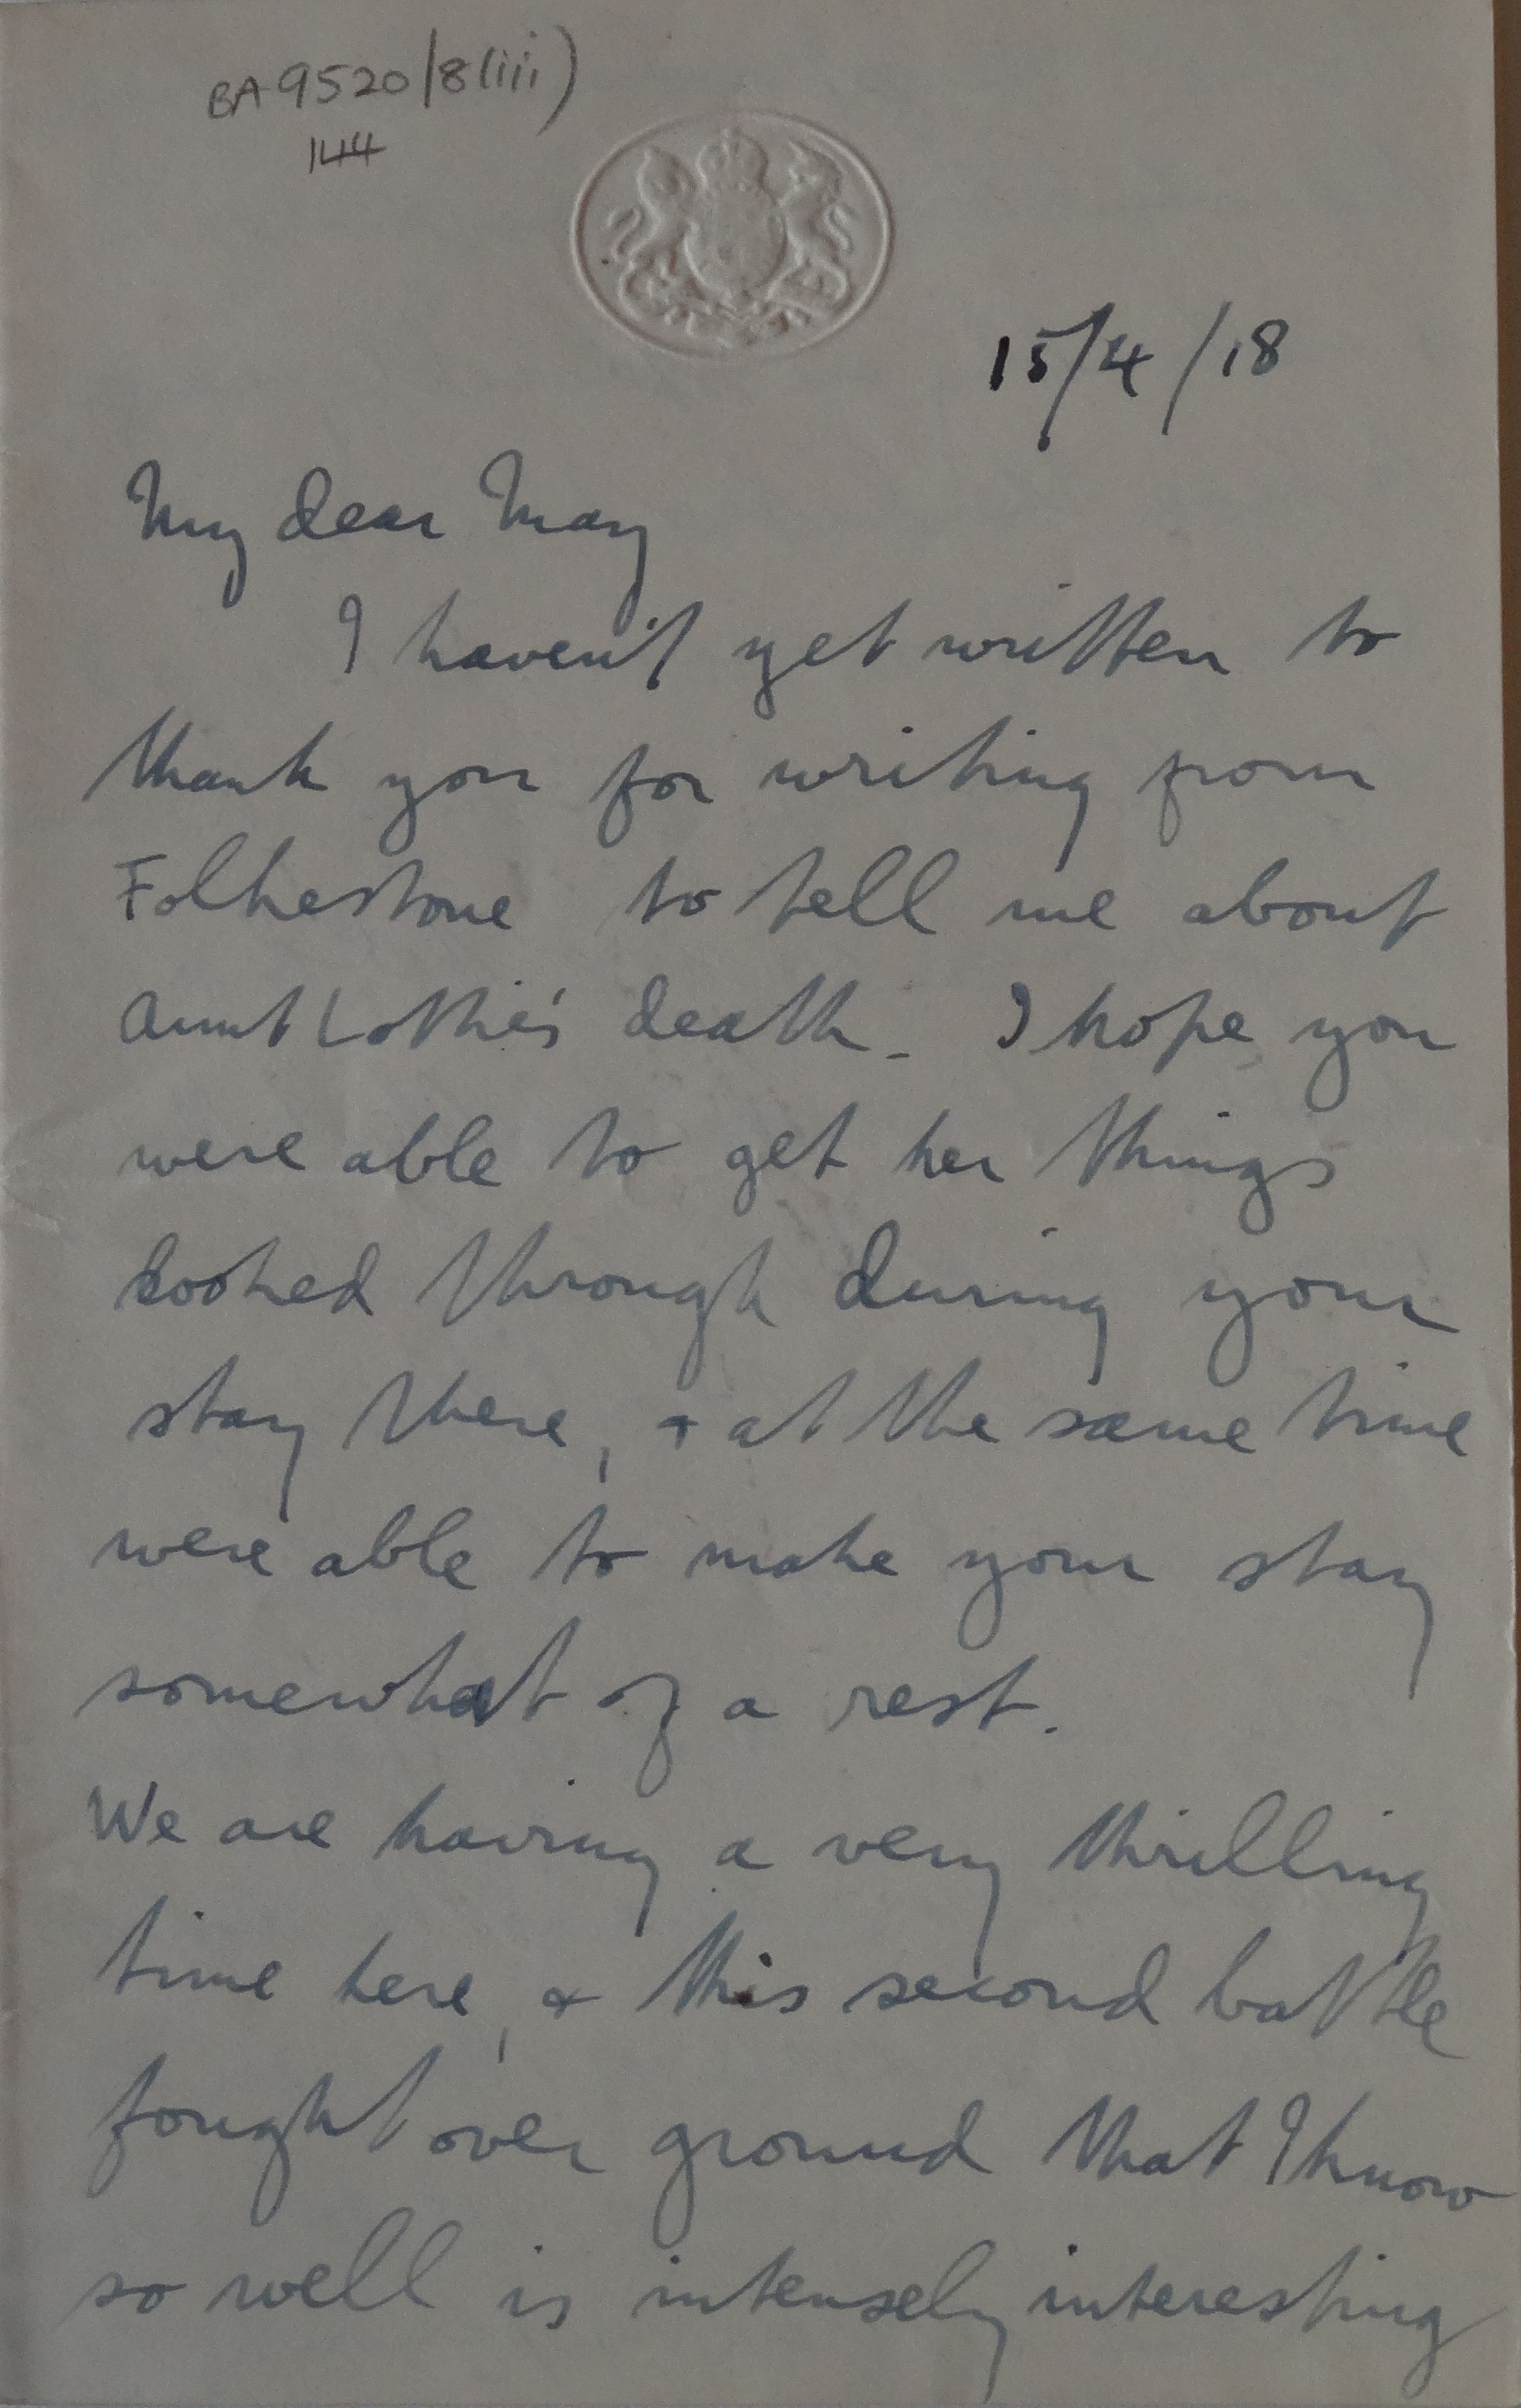 BA 9520/8(iii)
144
15/4/18
My dear May
I haven't yet written to
thank you for writing from
Folkestone to tell me about
Aunt Lottie's death. I hope you
were able to get her things
looked through during your
stay there, & at the same time
were able to make your stay
somewhat of a rest.
We are having a very thrilling
time here, & this second battle
fought over ground that I know
so well is intensely interesting